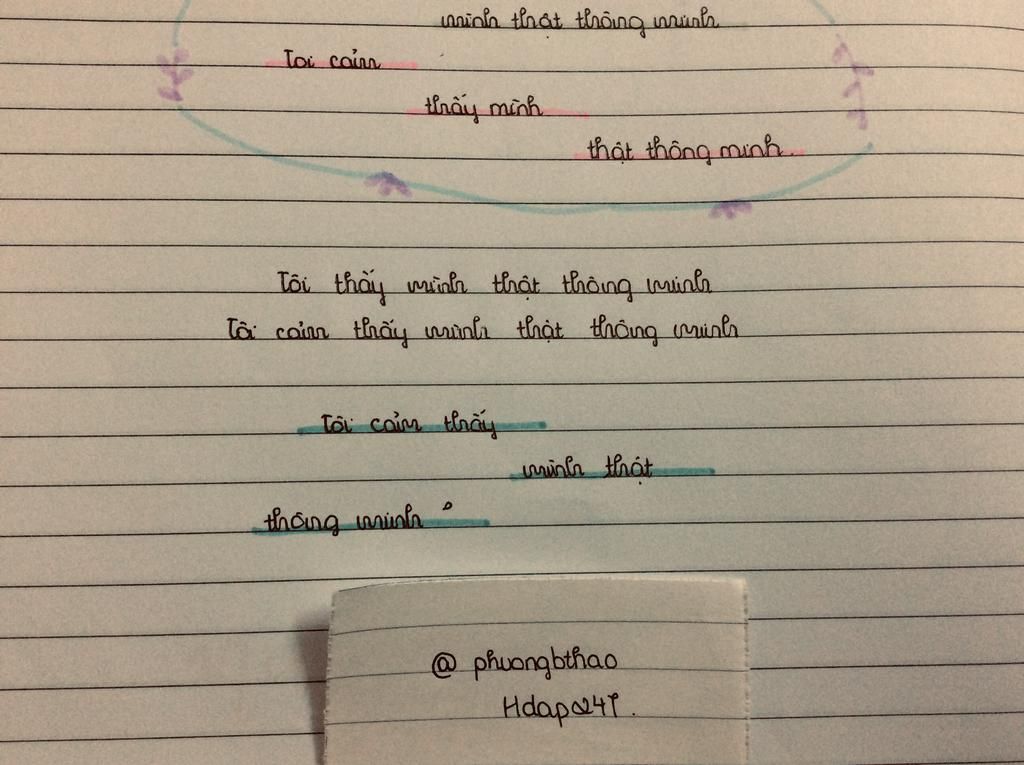 mình thật thông minh
Tôi cảm
thấy mình
thật thông minh.
Tôi thấy mình thật thông minh
Tôi cảm thấy mình thật thông minh
Tôi cảm thấy
mình thật
thông minh
@ phuongbthao